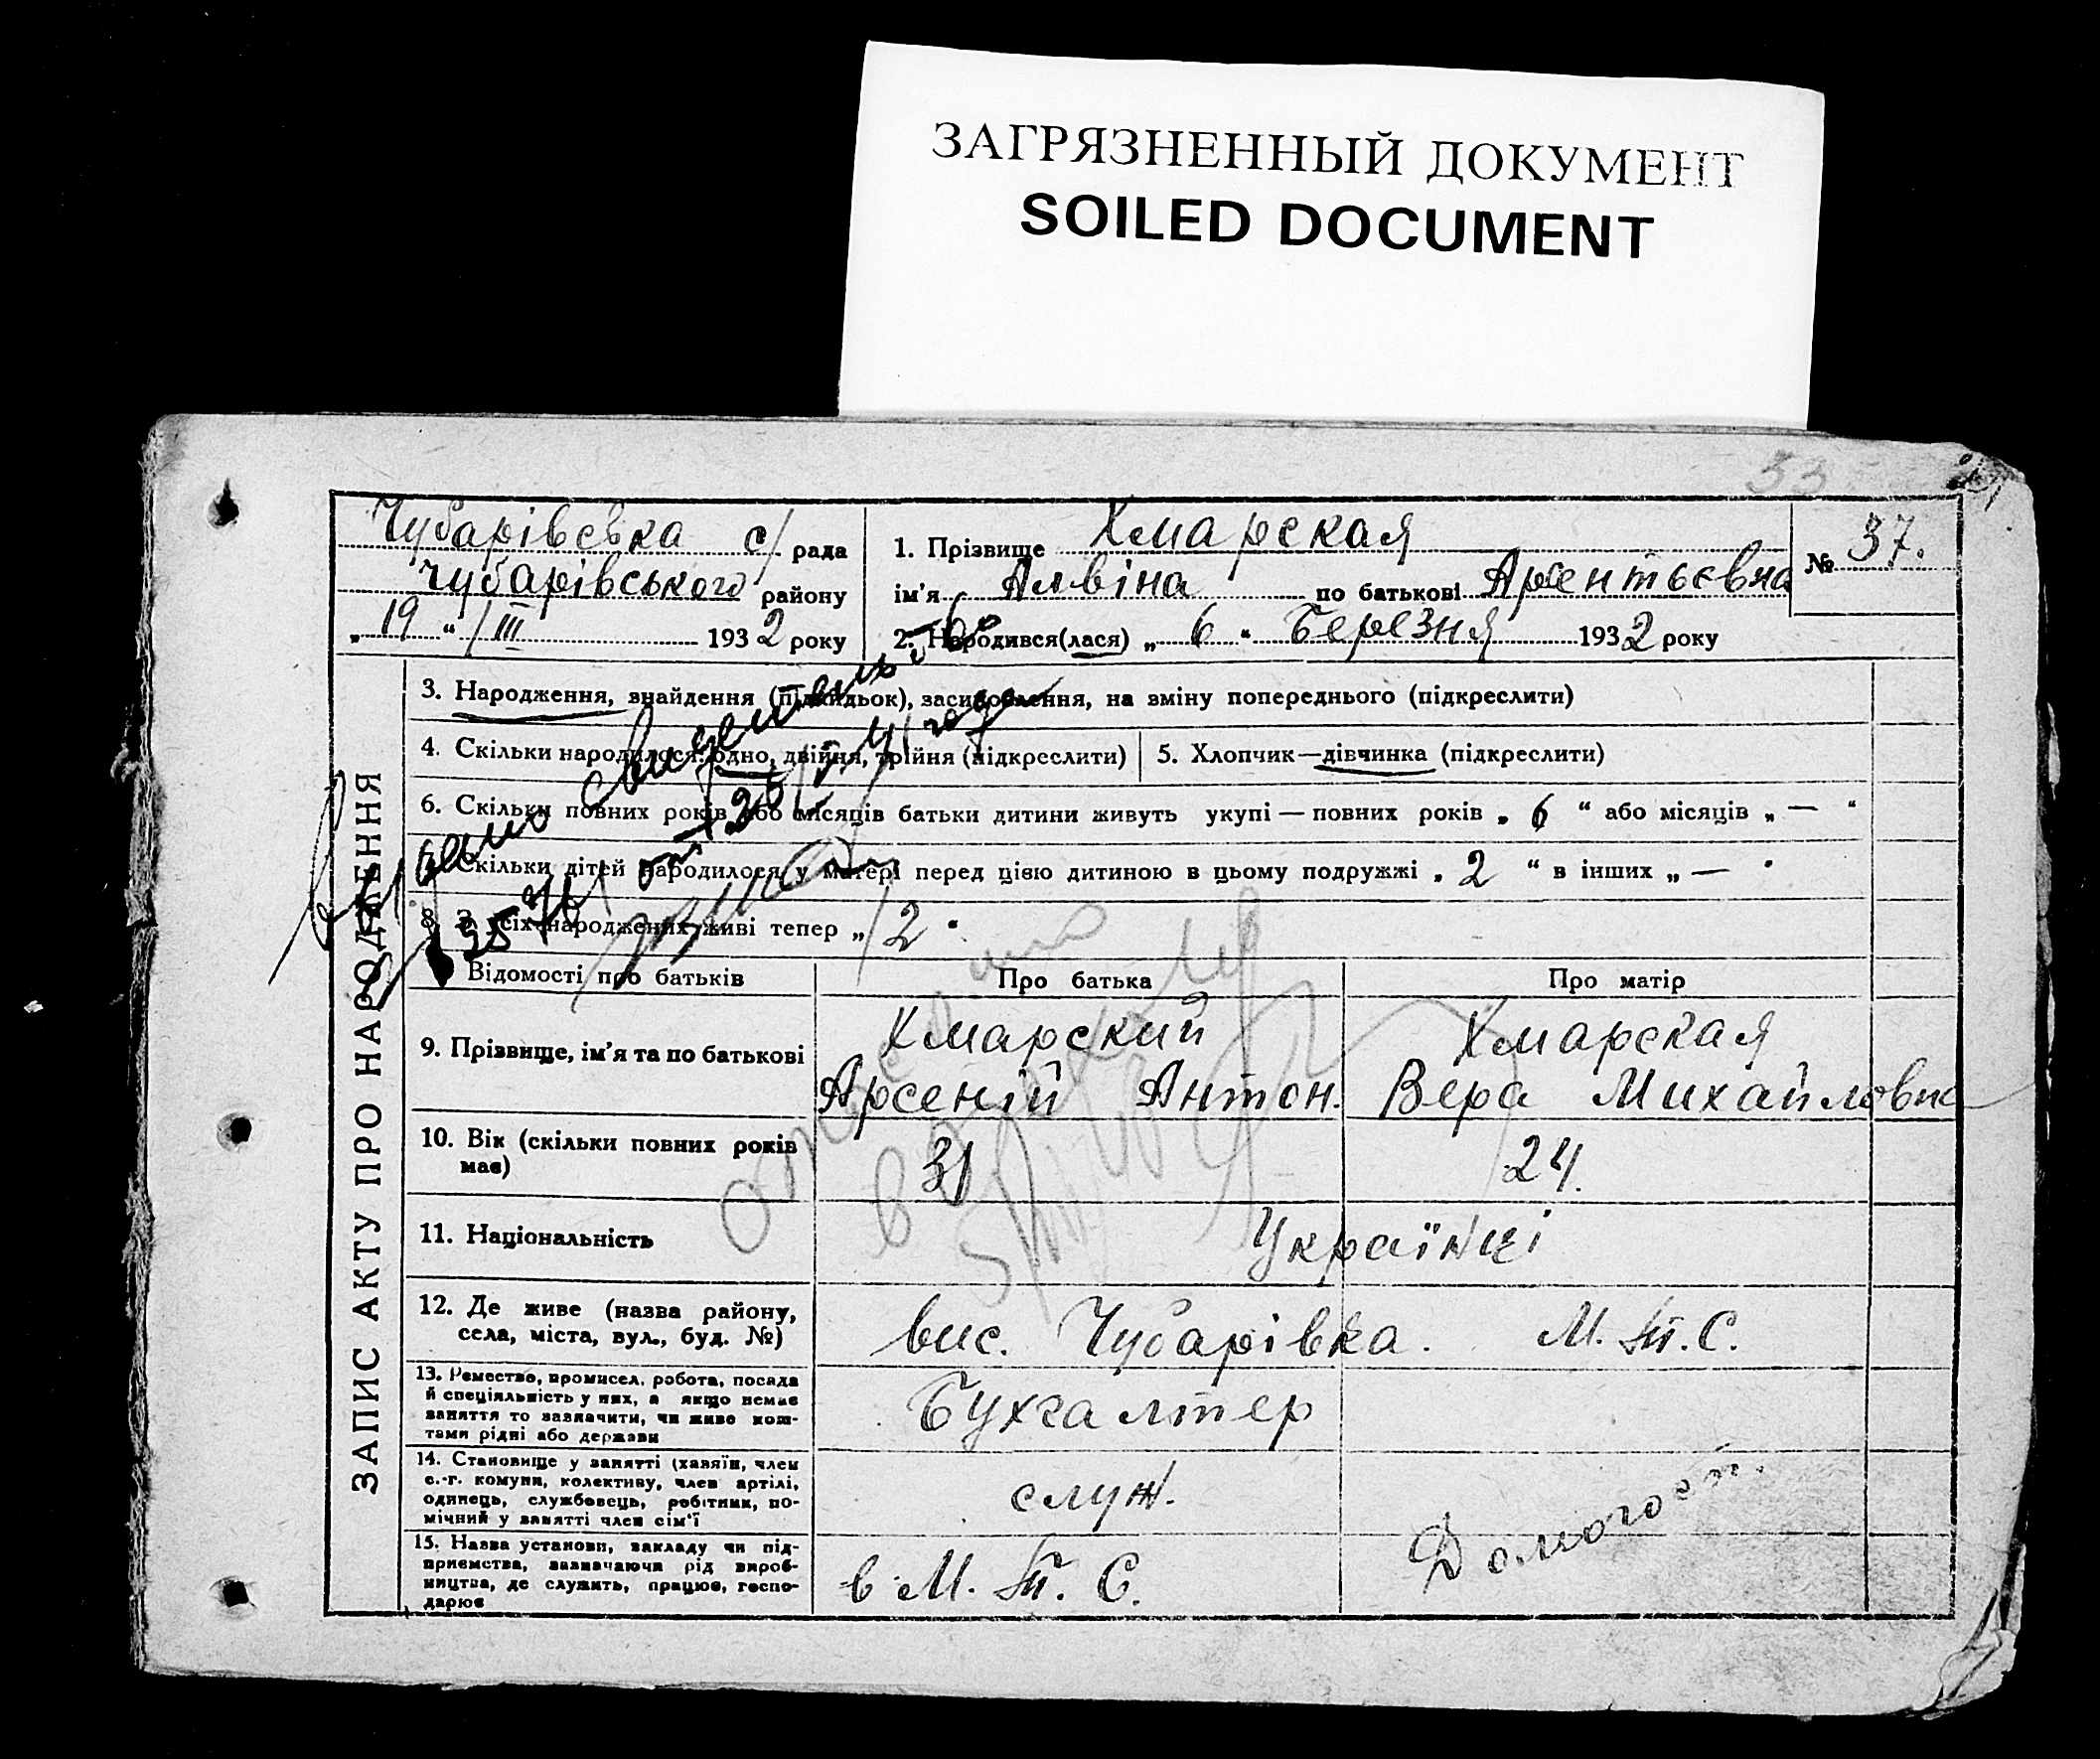 ЗАГРЯЗНЕННЫЙ ДОКУМЕНТ
SOILED DOCUMENT
33
Чубарівська с/рада
Чубарівського району
„ 19 “ III 1932 року
1. Прізвище Хмарская
ім'я Альвіна по батькові Арсентьєвна
2. Народився(лася) „ 6 “ Березня 1932 року
№ 37.
ЗАПИС АКТУ ПРО НАРОДЖЕННЯ
3. Народження, знайдення (підкидьок), засиновлення, на зміну попереднього (підкреслити)
4. Скільки народилося: одно, двійня, трійня (підкреслити)
5. Хлопчик—дівчинка (підкреслити)
6. Скільки повних років або місяців батьки дитини живуть укупі — повних років „ 6 “ або місяців „ — “
Скільки дітей народилося у матері перед цією дитиною в цьому подружжі „ 2 “ в інших „ — “
8. З усіх народжених живі тепер „ 2 “
Видано свидетельст
от 26/V 41 года
Відомості про батьків
Про батька
Про матір
9. Прізвище, ім'я та по батькові
Хмарский
Арсеній Антон.
Хмарская
Вера Михайловна
10. Вік (скільки повних років
має)
31
24.
11. Національність
Українці
12. Де живе (назва району,
села, міста, вул., буд. №)
вис. Чубарівка. М.Т.С.
13. Ремество, промисел, робота, посада
й спеціяльність у них, а якщо немає
заняття то зазначити, чи живе кош-
тами рідні або держави
Бухгалтер
14. Становище у занятті (хазяїн, член
с.-г. комуни, колективу, член артілі,
одинець, службовець, робітник, по-
мічний у занятті член сім'ї
служ.
Домогосп.
15. Назва установи, закладу чи під-
приємства, зазначаючи рід вироб-
ництва, де служить, працює, госпо-
дарює
в М. Т. С.